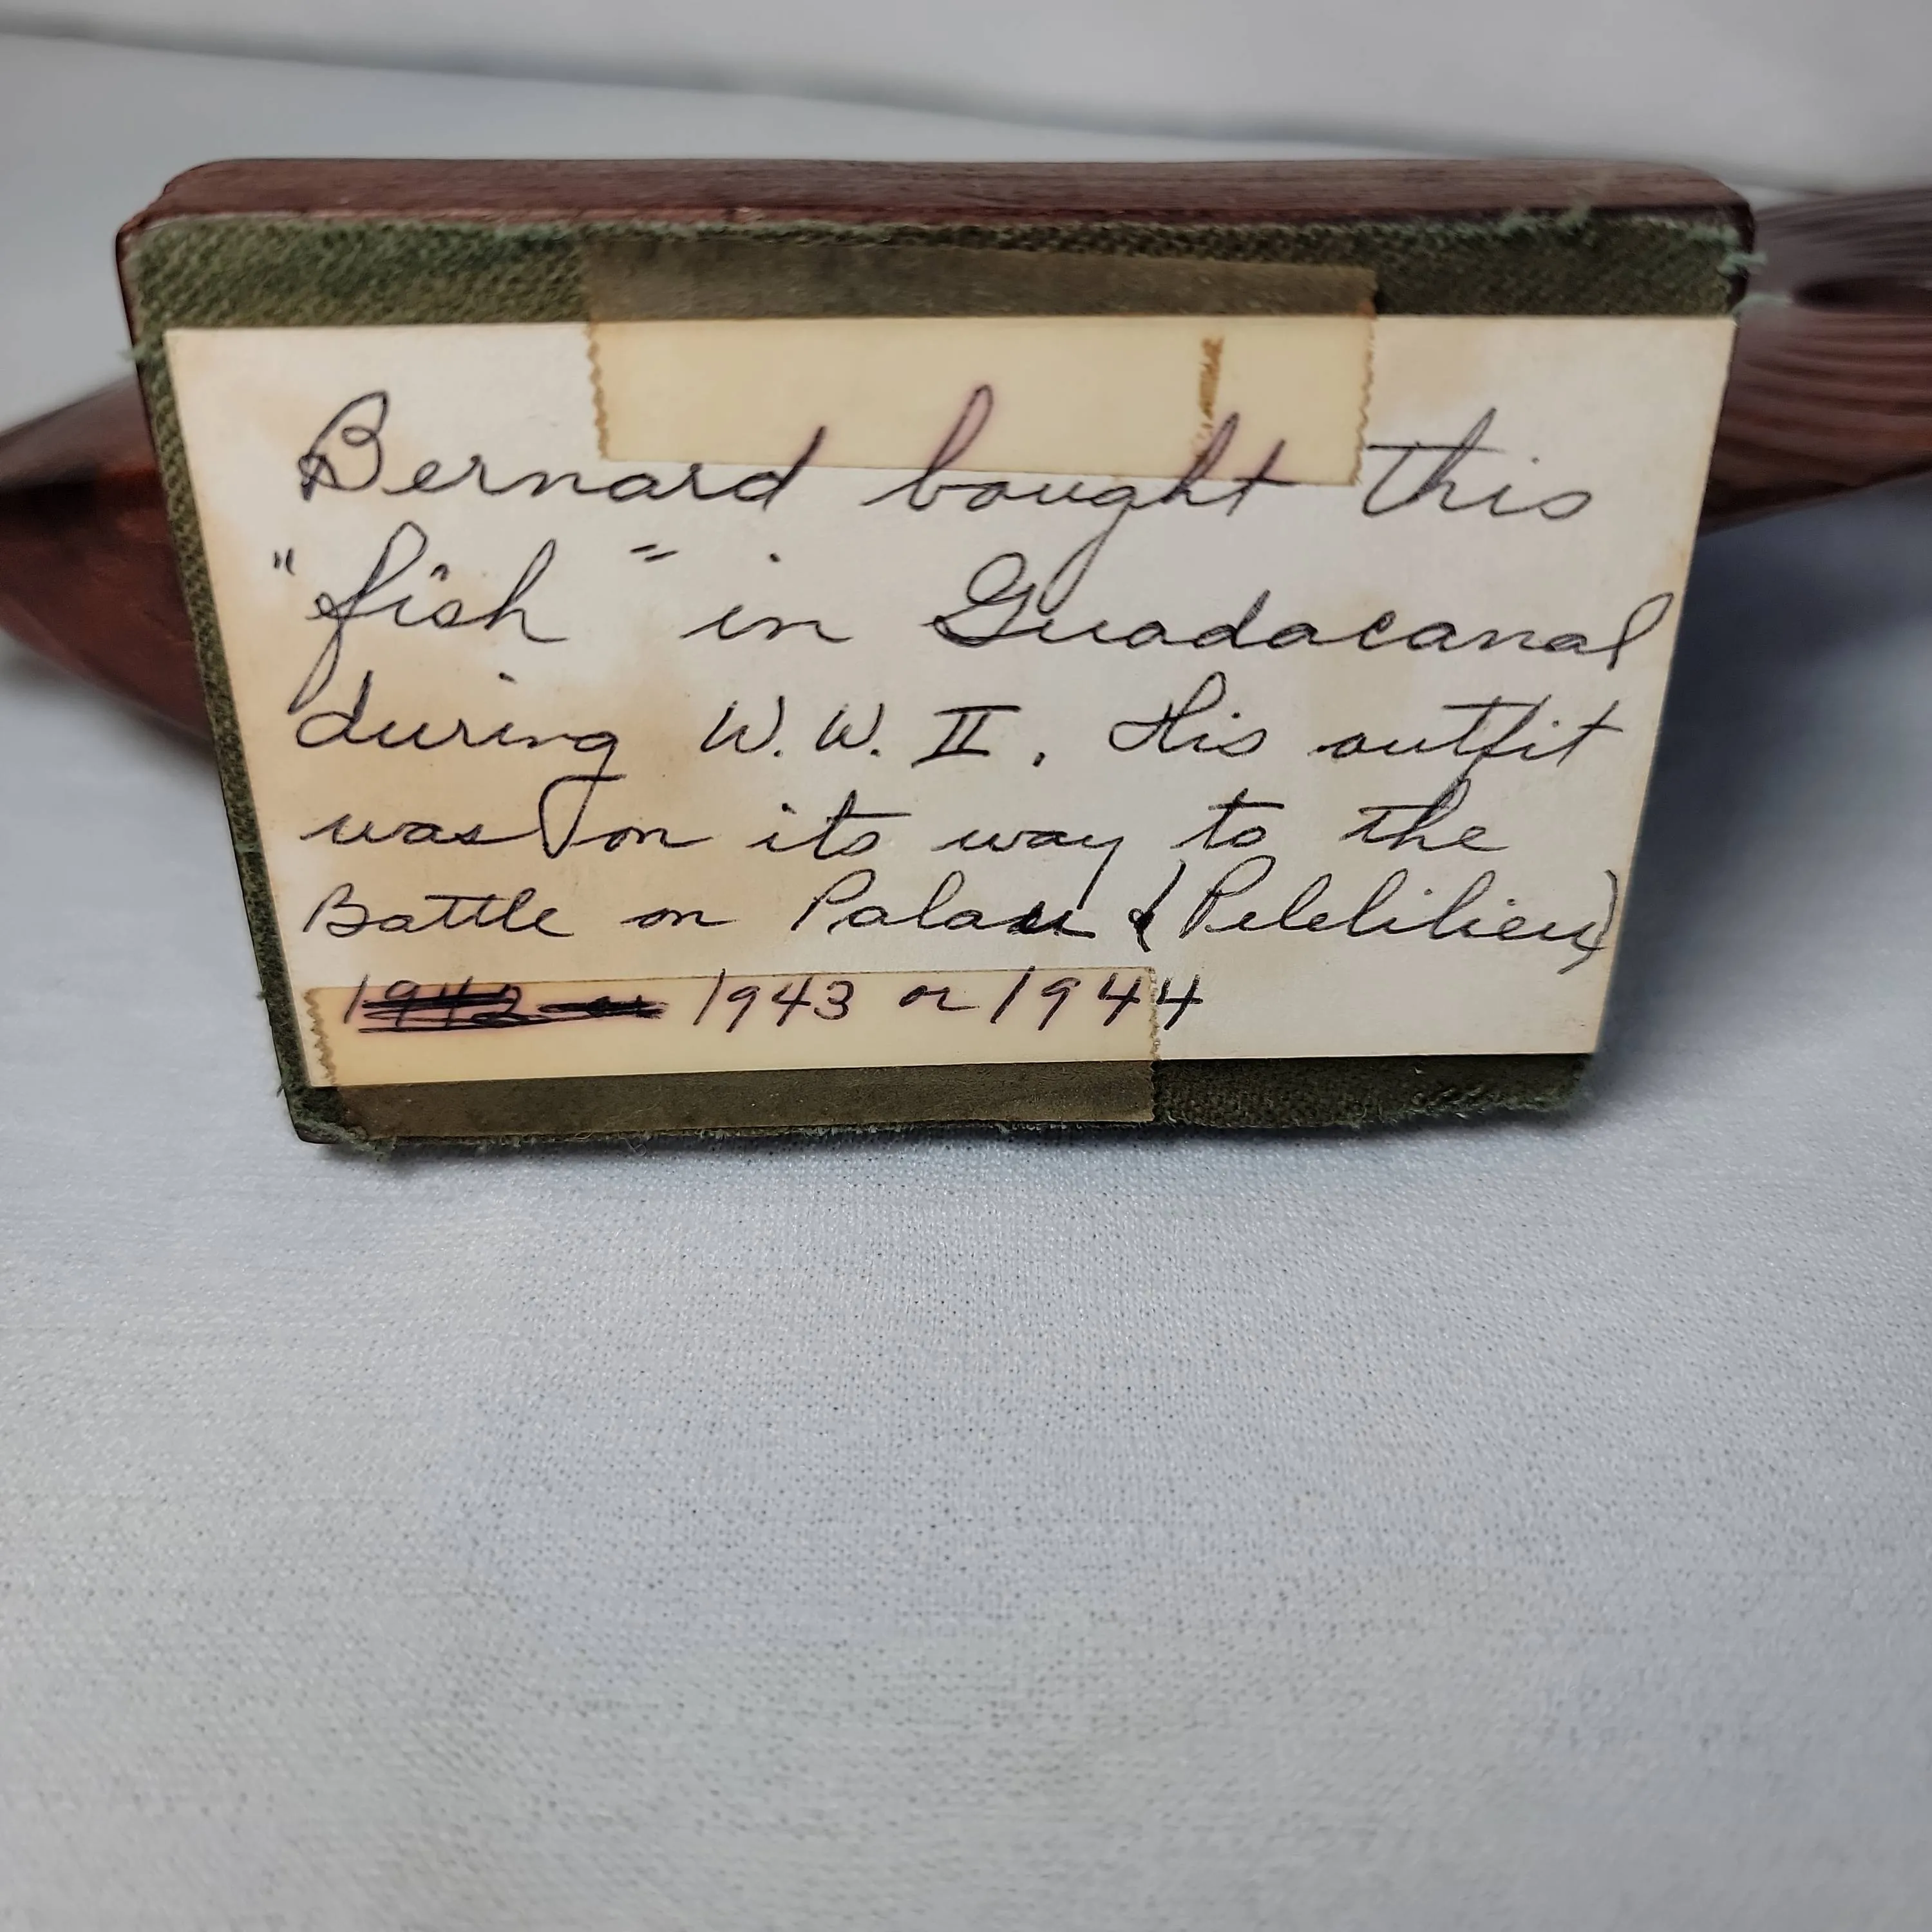 Bernard bought this
"fish" in Guadacanal
during W.W. II. His outfit
was on its way to the
Battle on Palau (Pelelilieu)
1942 or 1943 or 1944